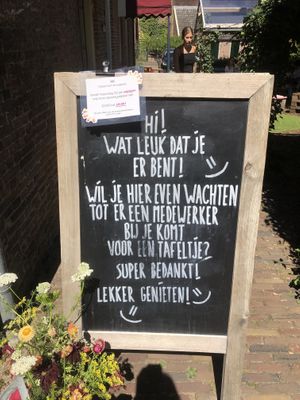 HI!
WAT LEUK DAT JE
ER BENT!
WIL JE HIER EVEN WACHTEN
TOT ER EEN MEDEWERKER
BIJ JE KOMT
VOOR EEN TAFELTJE?
SUPER BEDANKT!
LEKKER GENIETEN!